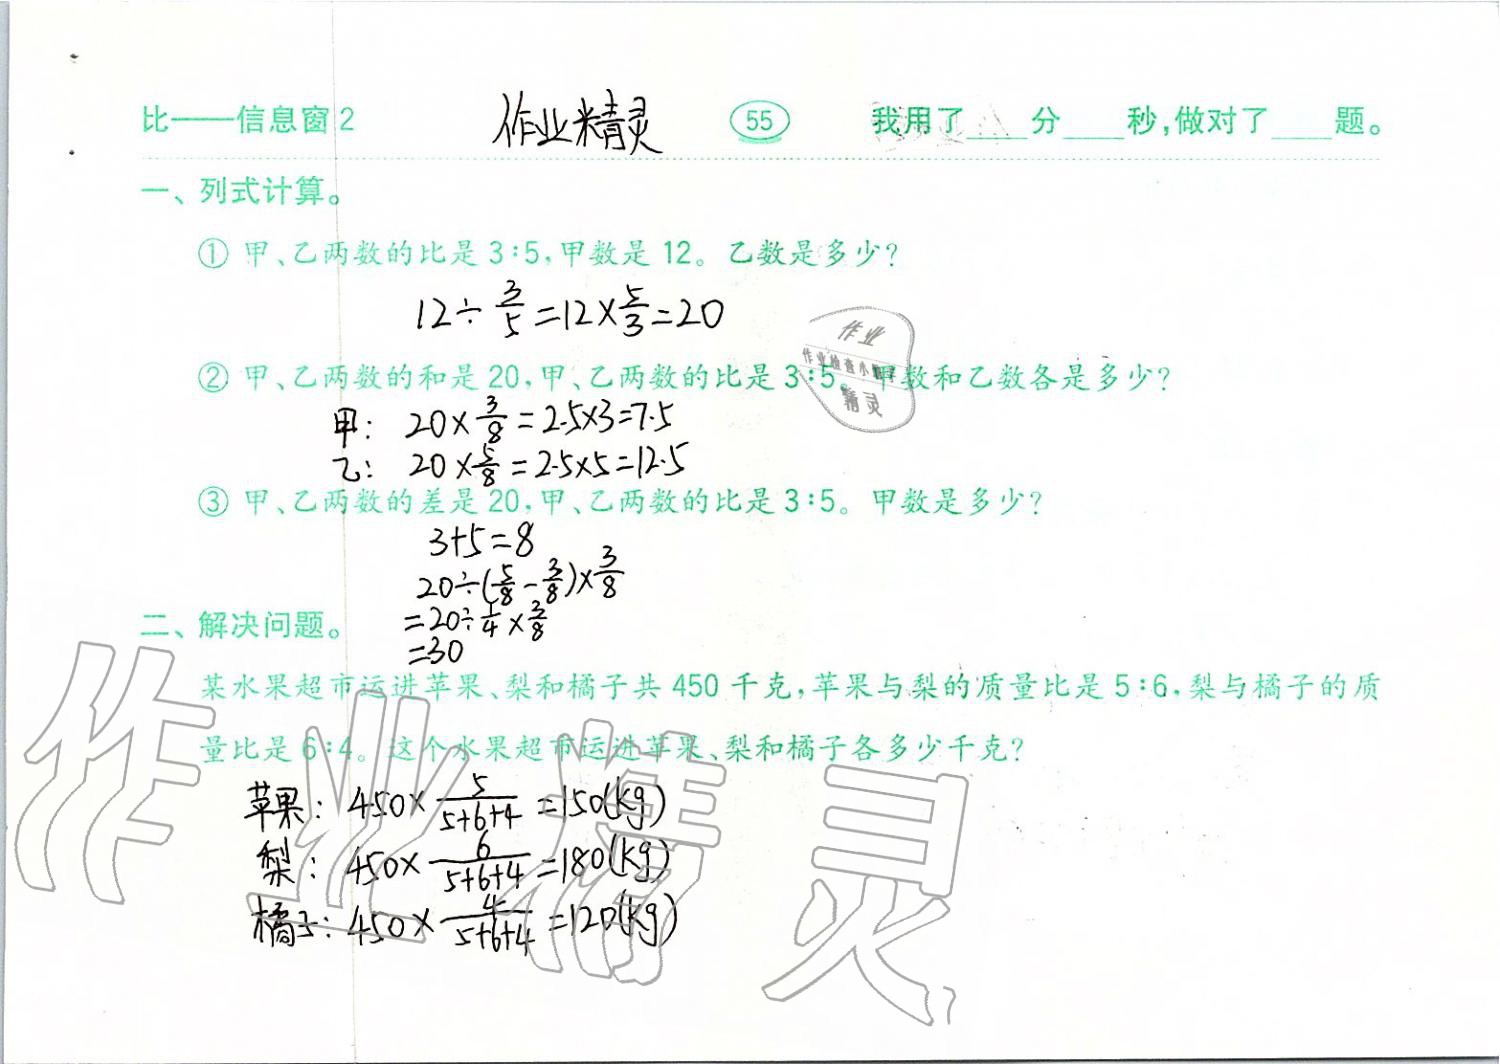 比——信息窗2 作业精灵 55 我用了____分____秒,做对了____题。
一、列式计算。
① 甲、乙两数的比是3:5,甲数是12。乙数是多少?
12÷3/5=12×5/3=20
作业
作业检查小
精灵
② 甲、乙两数的和是20,甲、乙两数的比是3:5。甲数和乙数各是多少?
甲: 20×3/8=2.5×3=7.5
乙: 20×5/8=2.5×5=12.5
③ 甲、乙两数的差是20,甲、乙两数的比是3:5。甲数是多少?
3+5=8
20÷(5/8-3/8)×3/8
=20÷1/4×3/8
=30
二、解决问题。
某水果超市运进苹果、梨和橘子共450千克,苹果与梨的质量比是5:6,梨与橘子的质
量比是6:4。这个水果超市运进苹果、梨和橘子各多少千克?
苹果: 450×5/(5+6+4)=150(kg)
梨: 450×6/(5+6+4)=180(kg)
橘子: 450×4/(5+6+4)=120(kg)
作业精灵